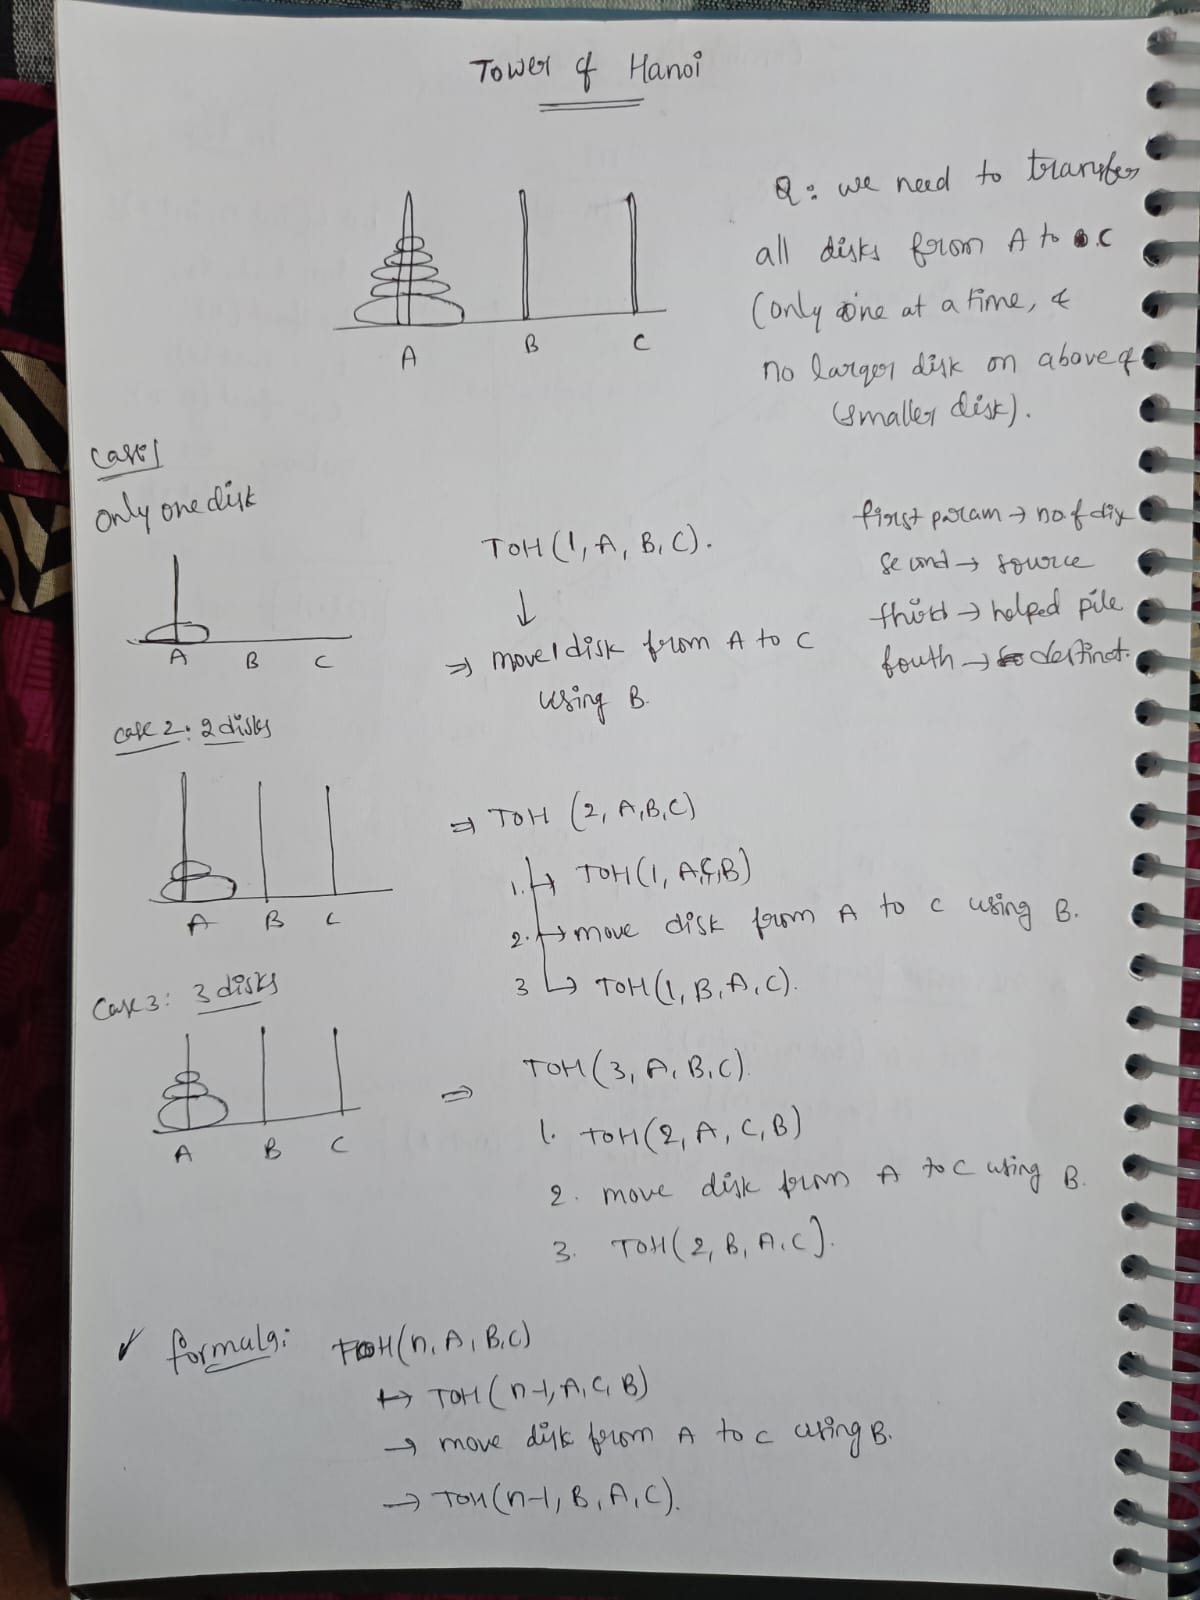 Tower of Hanoi
Q: we need to transfer
all disks from A to C
(only one at a time, &
no larger disk on above of
(smaller disk).
A B C
Case 1
only one disk
A B C
TOH (1, A, B, C).
↓
⇒ move 1 disk from A to C
using B.
first param → no of dis
second → source
third → helped pile
fouth → destinat.
case 2: 2 disks
A B C
⇒ TOH (2, A, B, C)
1. → TOH (1, A, C, B)
2. → move disk from A to C using B.
3 ↳ TOH (1, B, A, C).
Case 3: 3 disks
A B C
⇒ TOH (3, A, B, C).
1. TOH (2, A, C, B)
2. move disk from A to C using B.
3. TOH (2, B, A, C).
✓ formula: TOH (n, A, B, C)
↦ TOH (n-1, A, C, B)
→ move disk from A to C using B.
→ TOH (n-1, B, A, C).